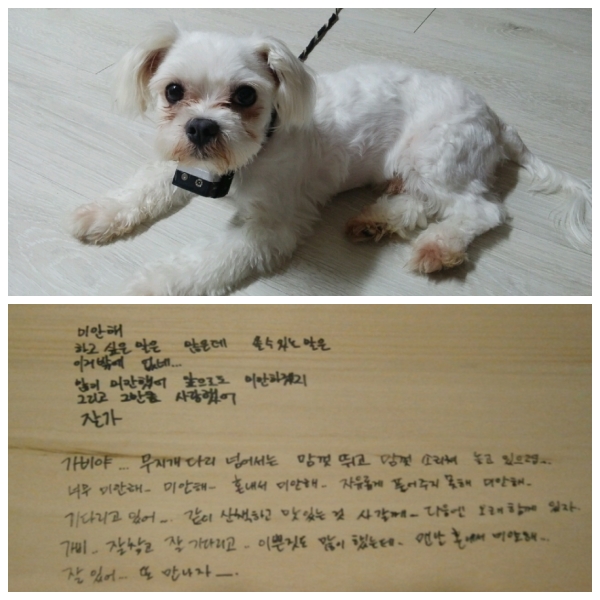 미안해
하고 싶은 말은 많은데 쓸수 있는 말은
이거 밖에 없네...
많이 미안했어 앞으로도 미안하겠지
그리고 그만큼 사랑했어
잘가
가비야... 무지개 다리 넘어서는 맘껏 뛰고 맘껏 소리쳐 놀고 있으렴...
너무 미안해.. 미안해.. 혼내서 미안해.. 자유롭게 풀어주지 못해 미안해..
기다리고 있어... 같이 산책하고 맛있는 것 사갈께.. 다음엔 오래 함께 있자.
가비.. 잘자고 잘 기다리고.. 이쁜짓도 많이 했는데.. 맨날 혼내서 미안해..
잘 있어... 또 만나자